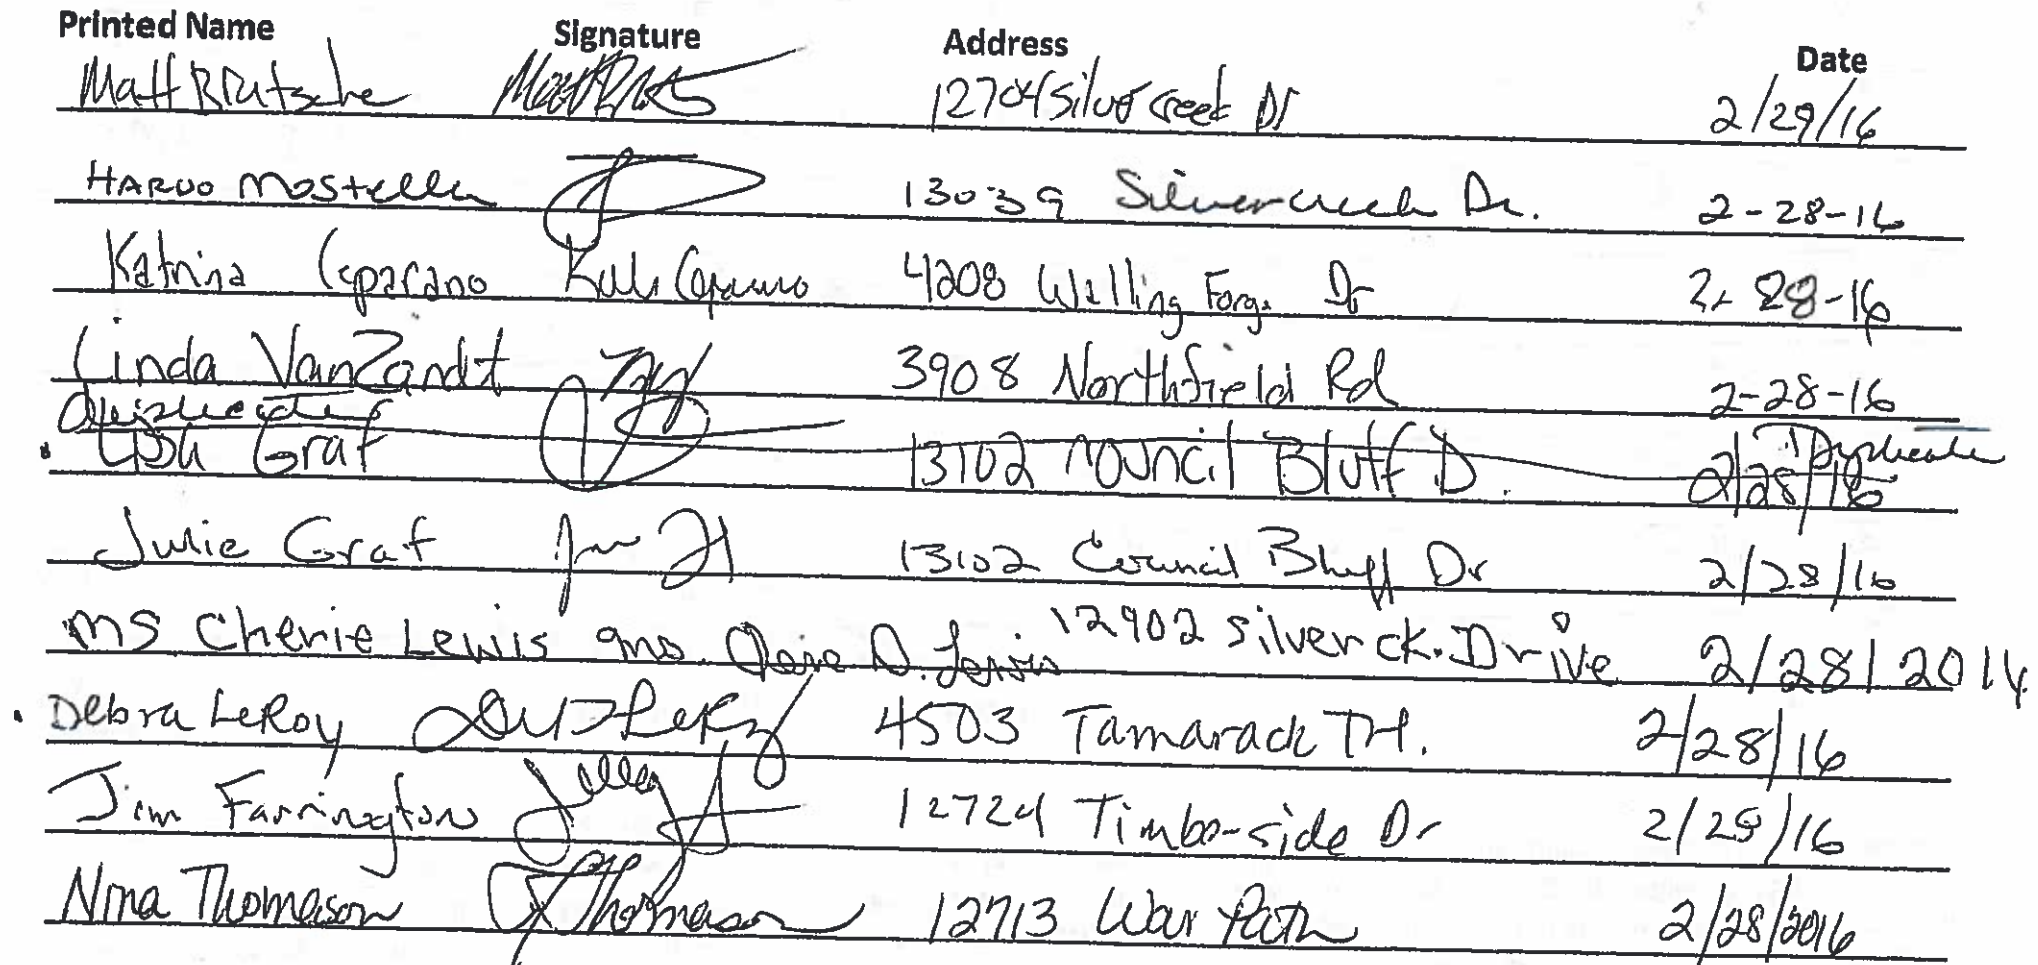 Printed Name Signature Address Date
Matt 12704 Silver Creek Dr 2/29/16
HARVO Mosteller 13039 Silvercreek Dr. 2-28-16
Katrina Caparano 4208 Welling Forge Dr 2-28-16
Linda VanZandt 3908 Northfield Rd 2-28-16
duplicate Duplicate
Lisa Graf 13102 Council Bluff D. 2/28/16
Julie Graf 13102 Council Bluff Dr 2/28/16
MS Cherie Lewis Ms. D. Lewis 12902 Silver ck. Drive 2/28/2016
Debra LeRoy 4503 Tamarack Trl. 2/28/16
Jim Farrington 12724 Timberside Dr 2/28/16
Nina Thomason Thomason 12713 War Path 2/28/2016